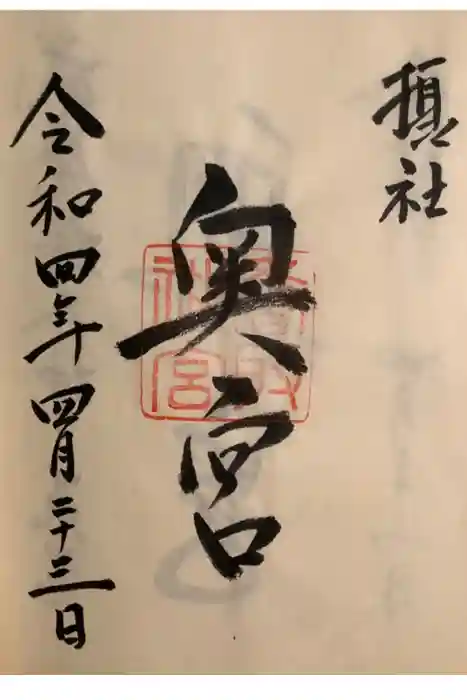 摂社
奥宮
香取神宮
令和四年四月二十三日